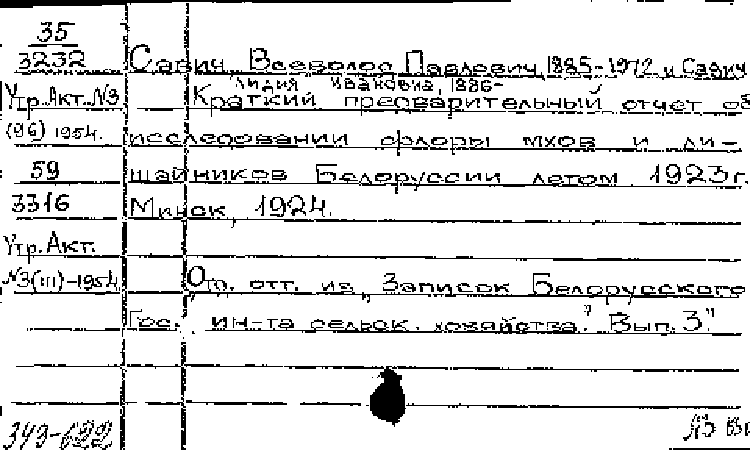 35
3232 Савич, Всеволод Павлевич, 1885-1972 и Савич
Лидия Ивановна, 1886-
Утр. Акт. №3 Краткий предварительный отчет об
(96) 1954. исследовании флоры мхов и ли-
59 шайников Белоруссии летом 1923 г.
3316 Минск, 1924.
Утр. Акт.
№3(III)-1954 Отд. отт. из „Записок Белорусского
Гос. ин-та сельск. хозяйства." Вып. 3."
349-622